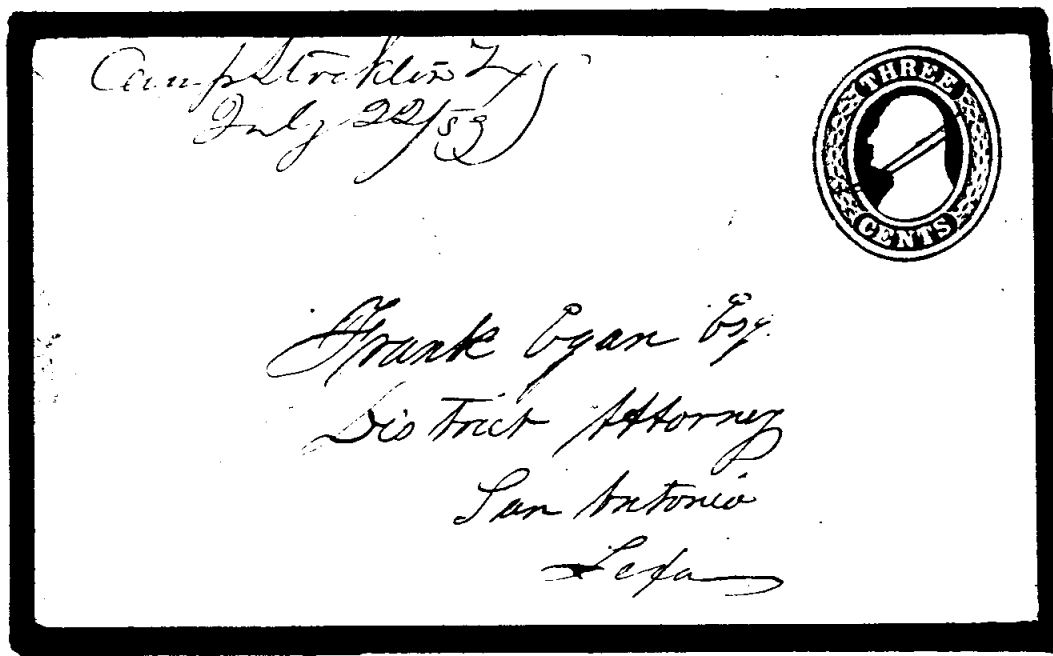 Camp Stockton Txs
July 22/59
THREE
CENTS
Frank Egan Esq.
District Attorney
San Antonio
Texas